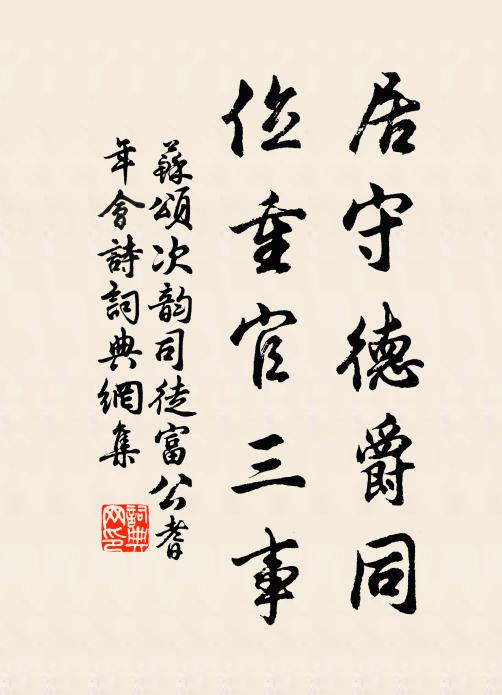 居守德爵同
位重官三事
蘇頌次韵司徒富公耆
年會詩詞典網集
詞典
网印